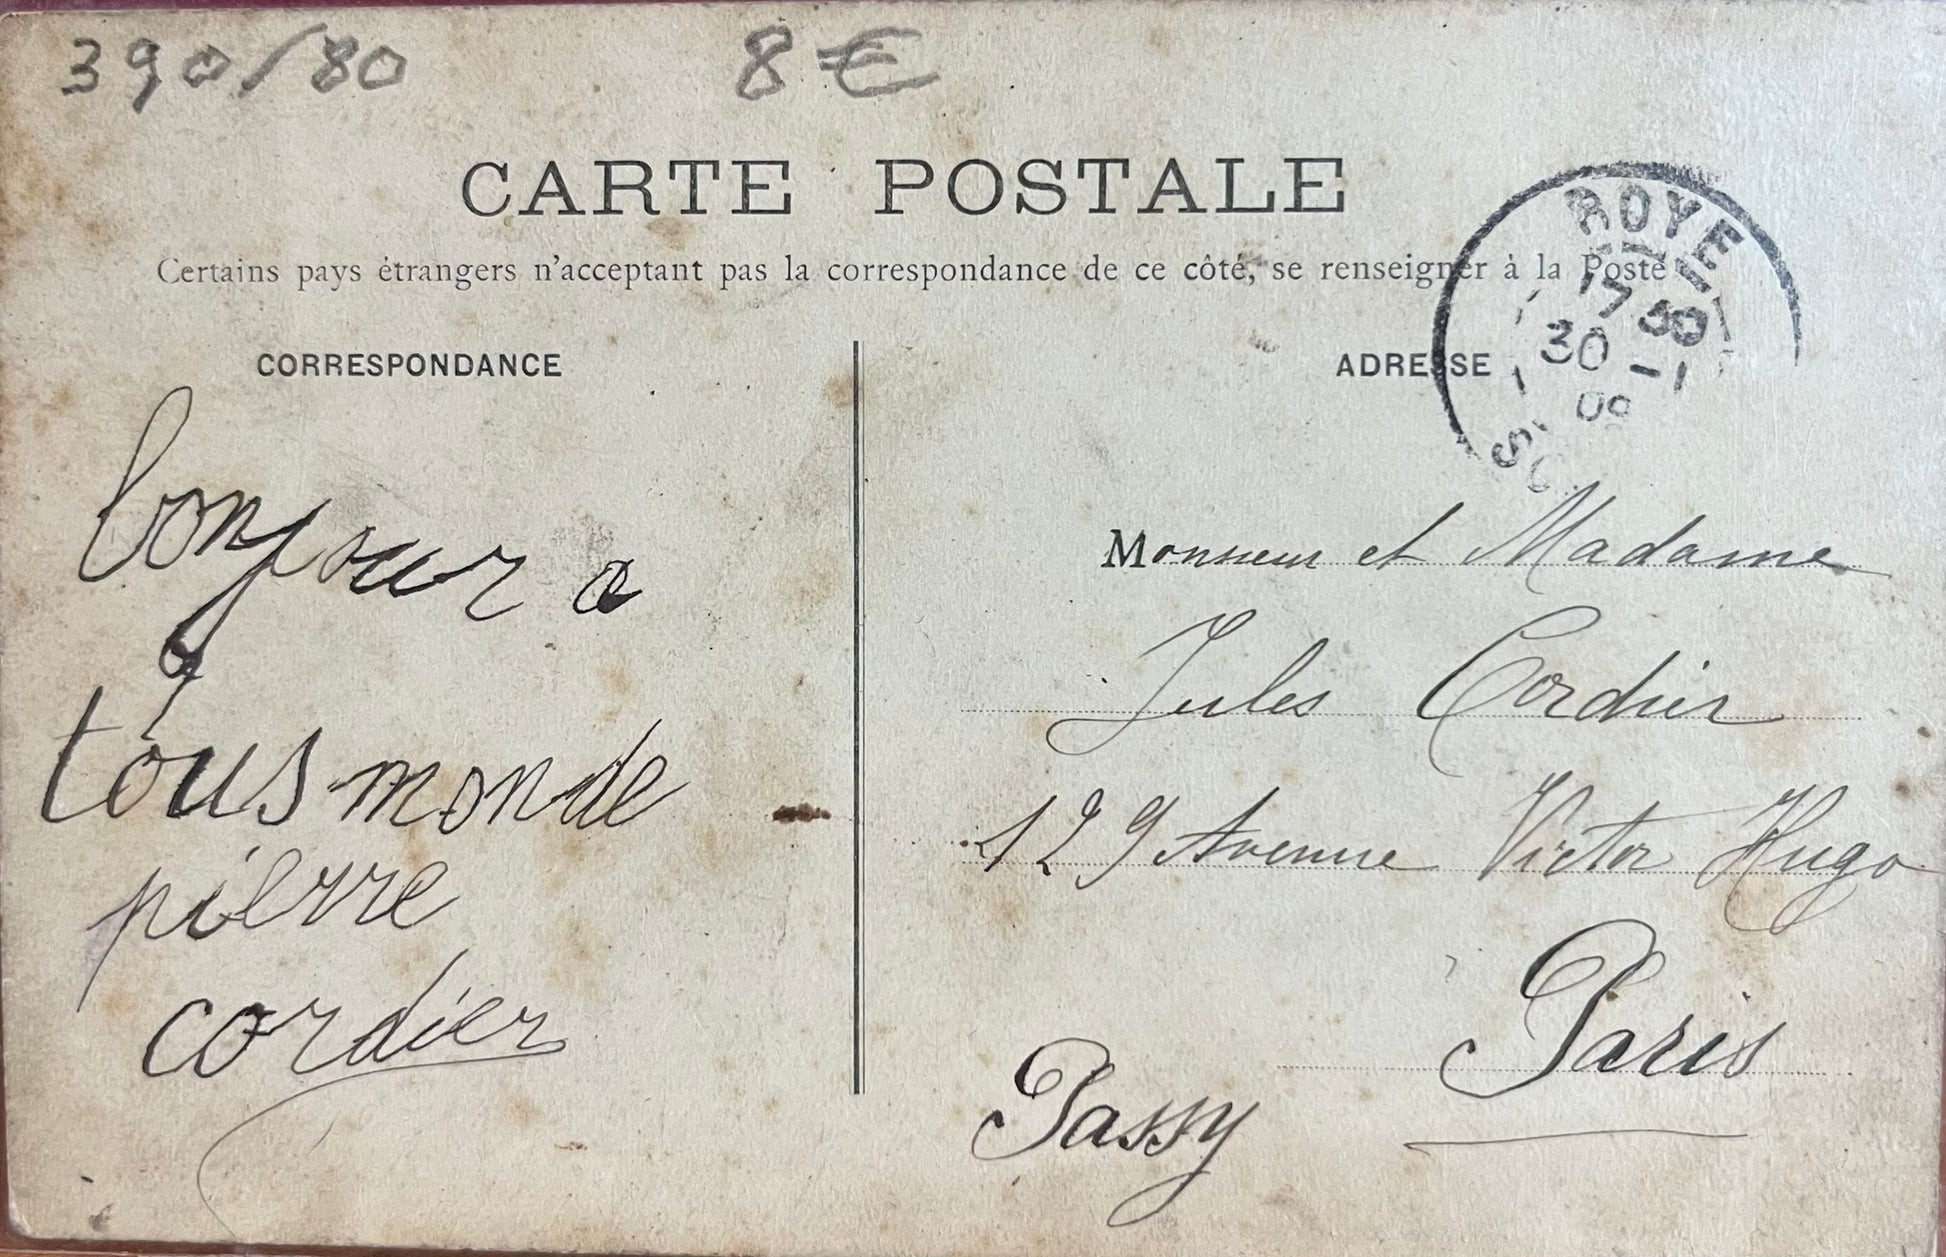 390/80 8€
CARTE POSTALE
Certains pays étrangers n'acceptant pas la correspondance de ce côté, se renseigner à la Poste
CORRESPONDANCE
bonjour a
tous monde
pierre
cordier
ADRESSE
ROYE
17 50
30 - 1
SO
Monsieur et Madame
Jules Cordier
129 Avenue Victor Hugo
Paris
Passy